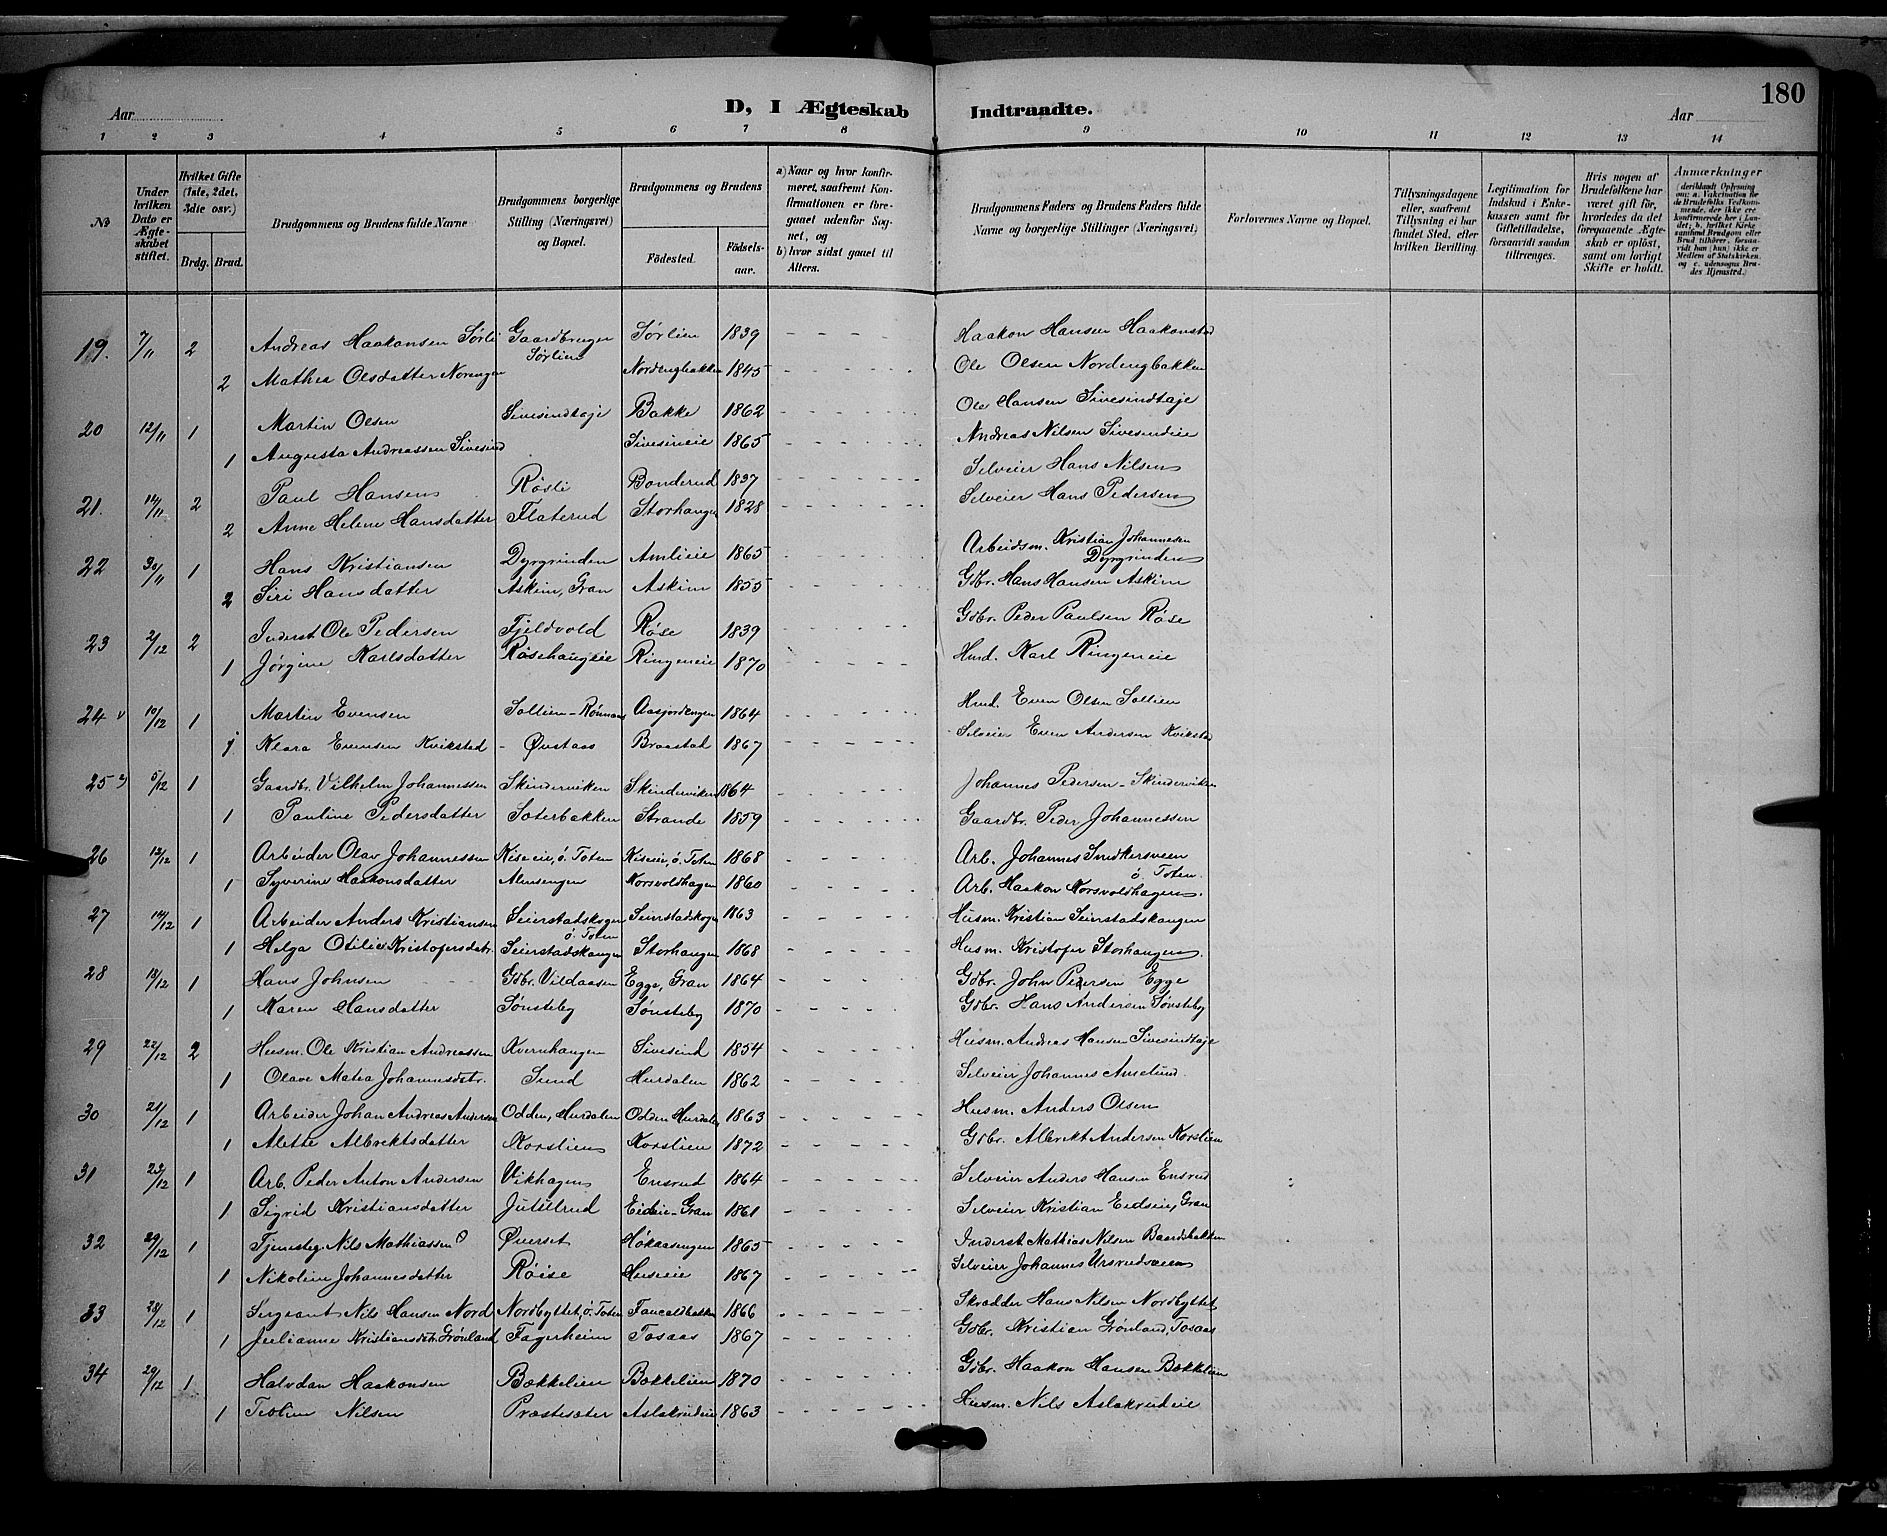 180
D, I Ægteskab Indtraadte.
Aar
Aar
1 2 3 4 5 6 7 8 9 10 11 12 13 14
No
Under hvilken Dato er Ægteskabet stiftet.
Hvilket Gifte (1ste, 2det, 3die osv.)
Brdg. Brud.
Brudgommens og Brudens fulde Navne
Brudgommens borgerlige Stilling (Næringsvei) og Bopæl.
Brudgommens og Brudens
Födested.
Födselsaar.
a) Naar og hvor konfirmeret, saafremt Konfirmationen er foregaaet udenfor Sognet, og
b) hvor sidst gaaet til Alters.
Brudgommens Faders og Brudens Faders fulde Navne og borgerlige Stillinger (Næringsvei)
Forlovernes Navne og Bopæl.
Tillysningsdagene eller, saafremt Tillysning ei har fundet Sted, efter hvilken Bevilling.
Legitimation for Indskud i Enkekassen samt for Giftetilladelse, forsaavidt saadan tiltrænges.
Hris nogen af Brudefolkene har været gift før, hvorledes da det foregaaende Ægteskab er oplöst, samt om lovligt Skifte er holdt.
Anmærkninger
(deriblandt Oplysning om: a. Vakcination for de Brudefolks Vedkommende, der ikke ere konfirmerede her i Landet; b. hvilket Kirkesamfund Brudgom eller Brud tilhörer, forsaavidt han (hun) ikke er Medlem af Statskirken, og c. udensogns Brudes Hjemsted.)
19. 7/11 2 Andreas Haakonsen Sørli Gaardbruger Sørlien Sørlien 1839 Haakon Hansen Haakonstad
2 Mathea Olsdatter Norengen Nordengbakken 1845 Ole Olsen Nordengbakken
20 12/11 1 Martin Olsen Sivesindtaje Bakke 1862 Ole Hansen Sivesindtaje
1 Augusta Andreassen Sivesind Sivesineie 1865 Andreas Nilsen Sivesineie
21. 14/11 2 Paul Hansen Røsli Bonderud 1837 Selveier Hans Nilsen
2 Anne Helene Hansdatter Flaterud Storhangen 1828 Selveier Hans Pedersen
22 30/11 1 Hans Kristiansen Dyrgrinden Amlieie 1865 Arbeidsm. Kristian Johannesen Dyrgrinden
2 Siri Hansdatter Askim, Gran Askim 1855 Gdbr. Hans Hansen Askim
23 2/12 2 Inderst Ole Pedersen Fjeldvold Røse 1839 Gdbr. Peder Paulsen Røse
1 Jørgine Karlsdatter Røsehaugeie Ringeneie 1870 Hmd. Karl Ringeneie
24 10/12 1 Martin Evensen Sollien - Aasjordengen 1864 Hmd. Even Olsen Sollien
1 Klara Evensen Kvikstad - Øvstaas Braastad 1867 Selveier Even Andersen Kvikstad
25 5/12 1 Gaardbr. Vilhelm Johannessen Skinderviken Skinderviken 1864 Johannes Pedersen - Skinderviken
1 Pauline Pedersdatter Soterbakken Strande 1859 Gaardbr. Peder Johannessen
26 12/12 1 Arbeider Olav Johannessen Kiseeie, ö. Toten Kiseeie, ö. Toten 1868 Arb. Johannes Snedkersveen ö. Toten
1 Syverine Haakonsdatter Almsengen Korsvoldhagen 1860 Arb. Haakon Korsvoldhagen.
27 14/12 1 Arbeider Anders Kristiansen Seierstadskogen ö. Toten Seierstadskogen 1863 Husm. Kristian Seierstadskangen
1 Helga Otilie Kristofersdtr. Seierstadskangen Storhangen 1868 Husm. Kristofer Storhangen.
28 13/12 1 Hans Johnsen Gdbr. Vildaasen Egge, Gran 1864 Gdbr. John Pedersen Egge
1 Karen Hansdatter Sønsteby Sønsteby 1870 Gdbr. Hans Andersen Sønsteby
29 22/12 2 Husm. Ole Kristian Andreassen Kvernhaugen Sivesind 1854 Husm. Andreas Hansen Sivesindtaje
1 Olave Matea Johannesdtr. Sund Hurdalen 1862 Selveier Johannes Amelund.
30 21/12 1 Arbeider Johan Andreas Andersen Odden, Hurdalen Odden Hurdalen 1863 Husm. Anders Olsen
1 Alette Albrektsdatter Korslien Korslien 1872 Gdbr. Albrekt Andersen Korslien
31 23/12 1 Arb. Peder Anton Andersen Vikhagen Ensrud 1864 Selveier Anders Hansen Ensrud
1 Sigrid Kristiansdatter Jutulrud Eideie - Gran 1861 Selveier Kristian Eideie, Gran
32 29/12 1 Tjenesteg. Nils Mathiassen Øverset Høkaasengen 1865 Inderst Mathias Nilsen
1 Nikoline Johannesdatter Røise Huseie 1867 Selveier Johannes Ursrudsveen
33 28/12 1 Sergeant Nils Hansen Nord Nordbyttet, ö. Toten 1866 Skrædder Hans Nilsen Nordbyttet
1 Julianne Kristiansdtr. Grönland Fagerheim Tosaas 1867 Gdbr. Kristian Grönland, Tosaas
34 29/12 1 Halvdan Haakonsen Bækkelien Bækkelien 1870 Gdbr. Haakon Hansen Bækkelien
1 Teoline Nilsen Præstesæter Aslakrudeie 1863 Husm. Nils Aslakrudeie